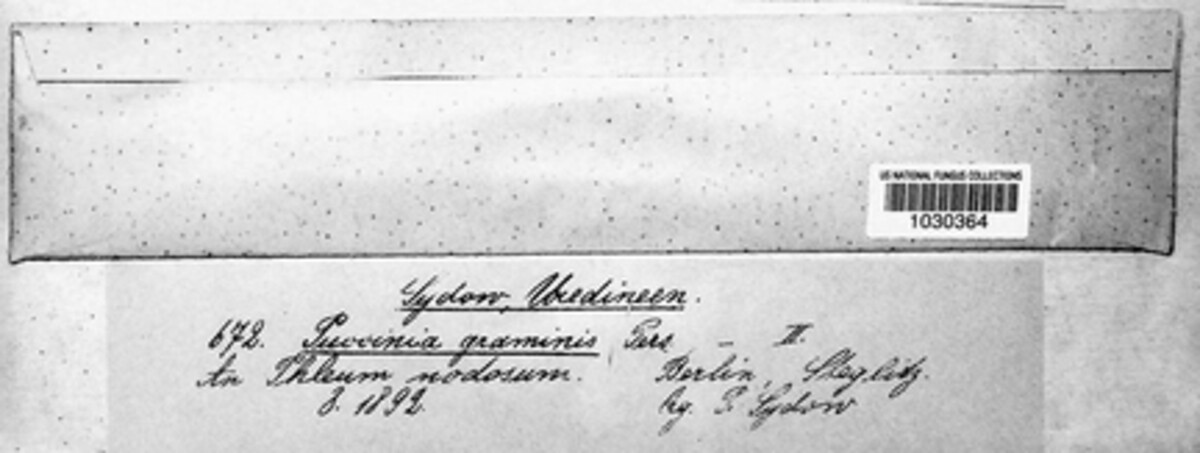 US NATIONAL FUNGUS COLLECTIONS
1030364
Sydow, Uredineen.
672. Puccinia graminis Pers. – II.
An Phleum nodosum. Berlin, Steglitz.
8. 1892 lg. P. Sydow